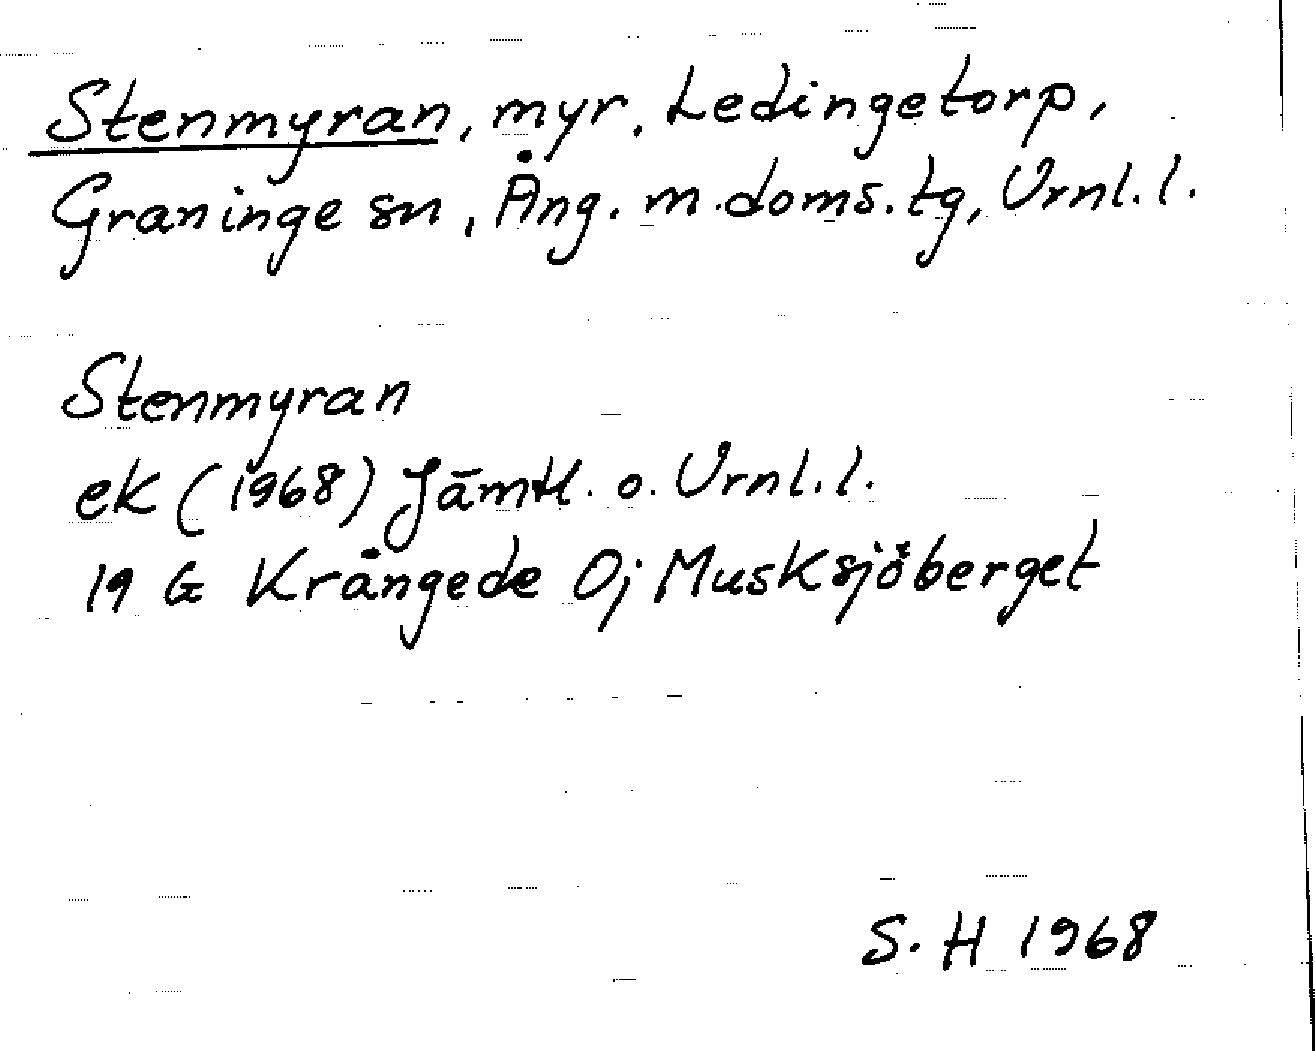 Stenmyran, myr, Ledingetorp,
Graninge sn, Ång. m. doms. tg, Vrnl. l.
Stenmyran
ek (1968) Jämtl. o. Vrnl. l.
19 G Krångede Oj Musksjöberget
S. H 1968